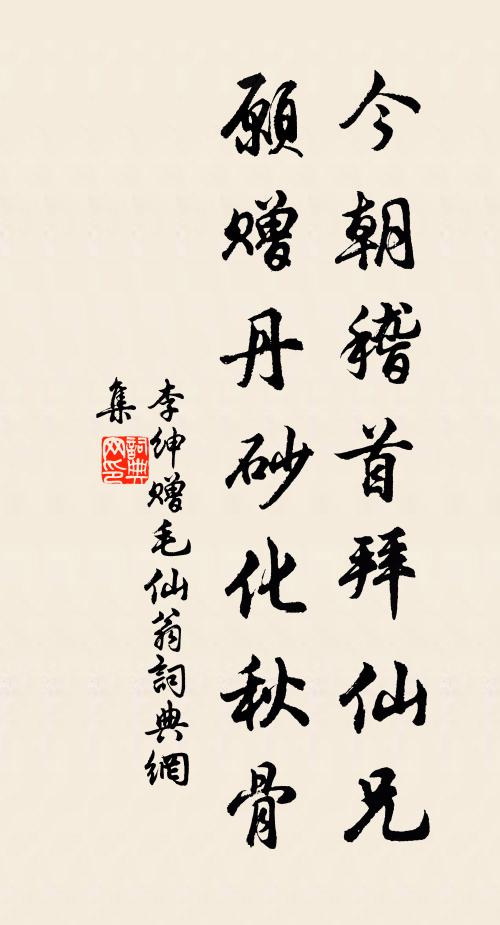 今朝稽首拜仙兄
願贈丹砂化秋骨
李紳贈毛仙翁詞典網
集
詞典
网印